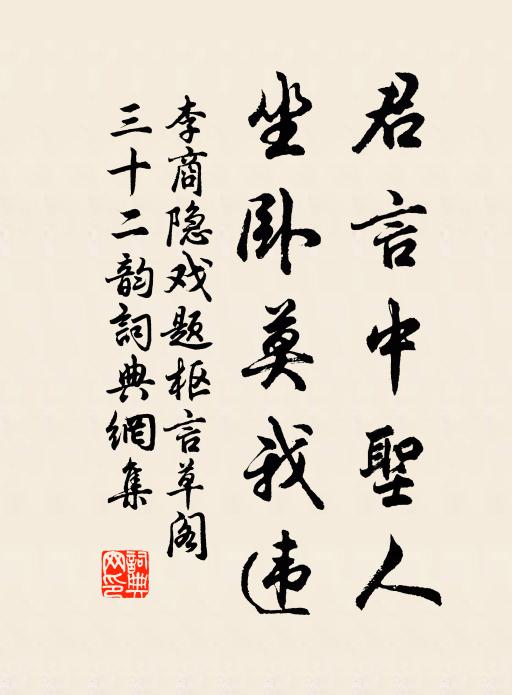 君言中聖人
坐卧莫我违
李商隐戏题枢言草阁
三十二韵詞典網集
詞典
网印